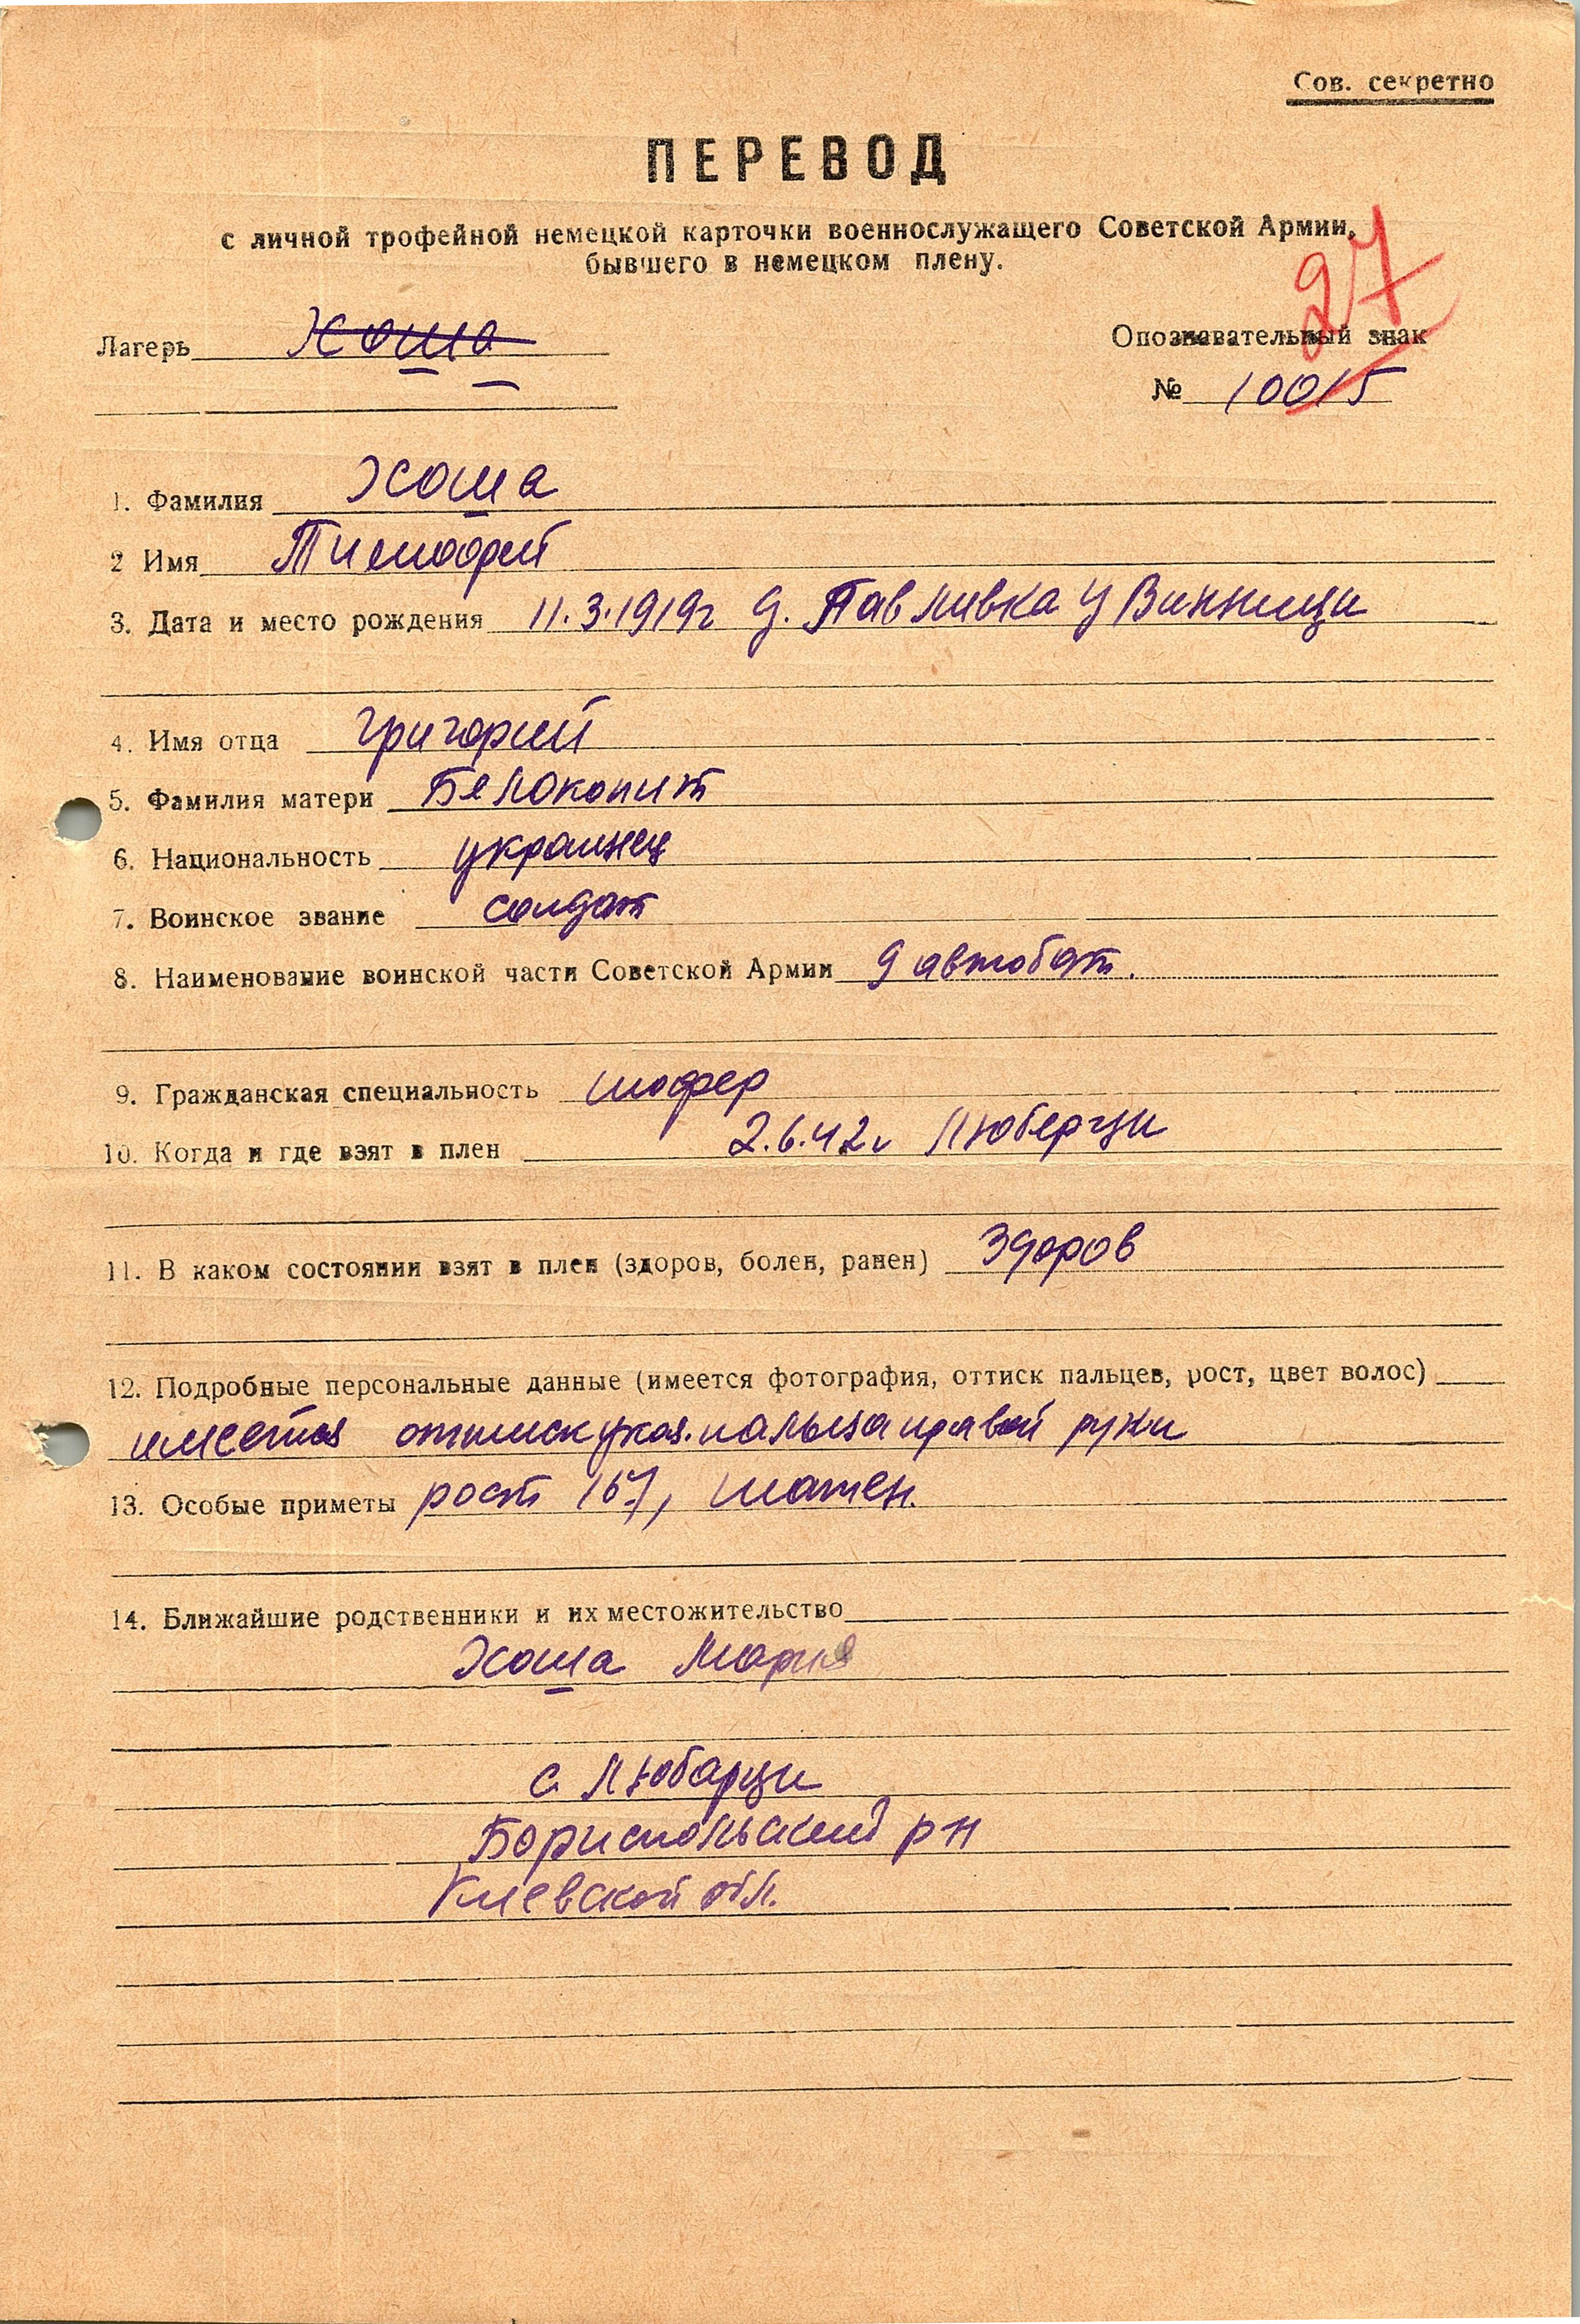 Сов. секретно
ПЕРЕВОД
с личной трофейной немецкой карточки военнослужащего Советской Армии,
бывшего в немецком плену.
27
Лагерь Хоша
Опознавательный знак
№ 10015
1. Фамилия Хоша
2 Имя Тимофей
3. Дата и место рождения 11.3.1919г д. Павливка у Винници
4. Имя отца Григорий
5. Фамилия матери Белокопит
6. Национальность украинец
7. Воинское звание солдат
8. Наименование воинской части Советской Армии 9 автобат.
9. Гражданская специальность шофер
10. Когда и где взят в плен 2.6.42г Люберци
11. В каком состоянии взят в плен (здоров, болен, ранен) здоров
12. Подробные персональные данные (имеется фотография, оттиск пальцев, рост, цвет волос)
имеется оттиск указ. пальца правой руки
13. Особые приметы рост 167, шатен.
14. Ближайшие родственники и их местожительство
Хоша Мария
с Любарци
Бориспольский р н
Киевской обл.